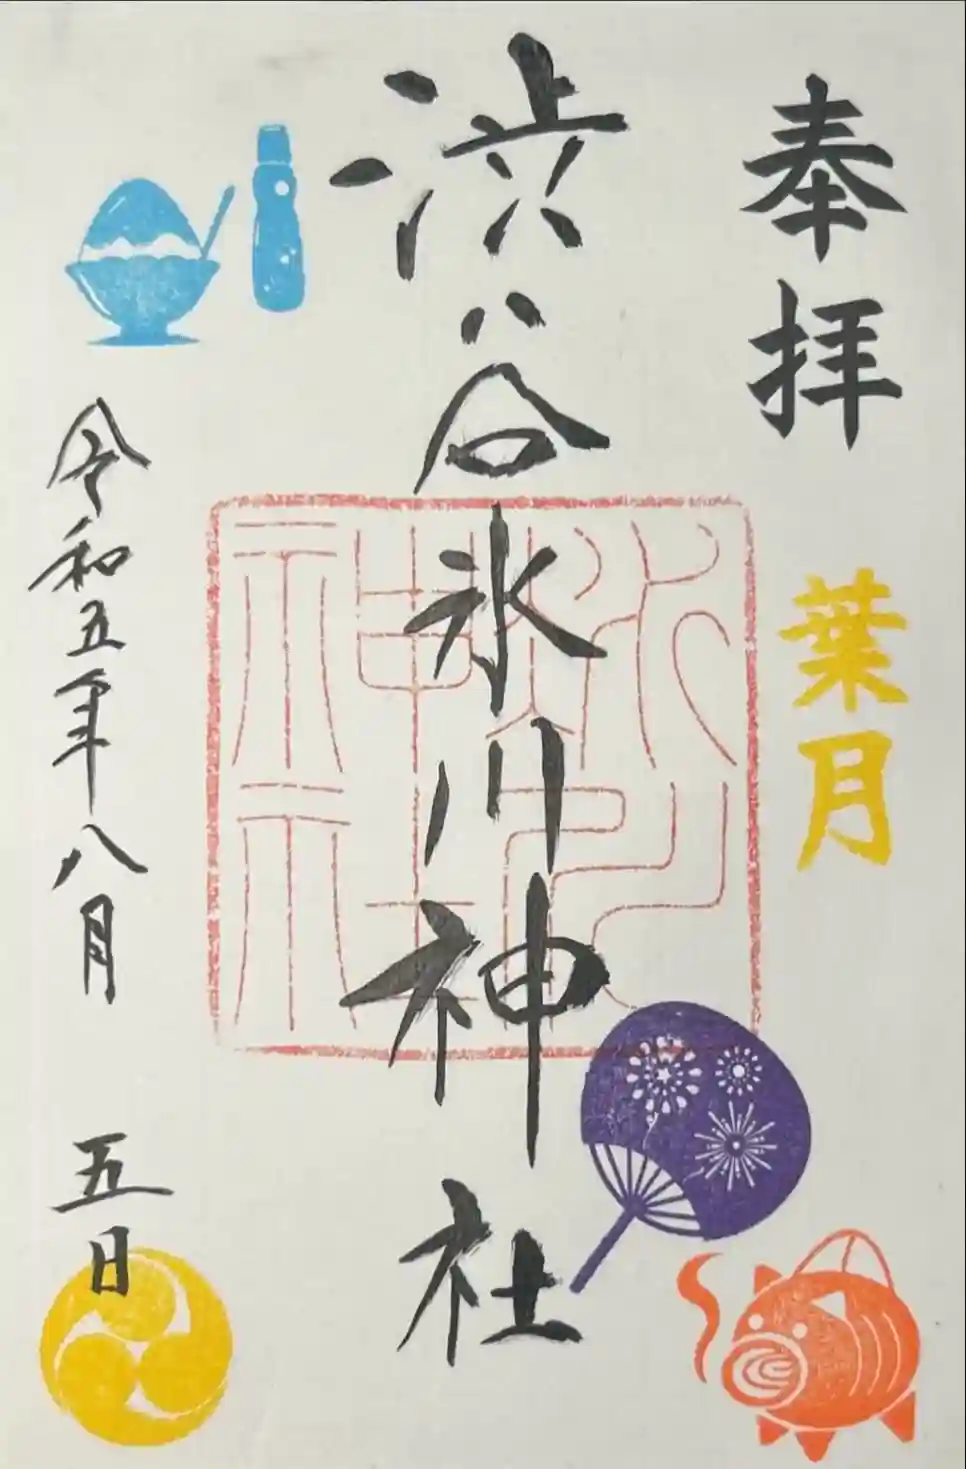 奉拝
葉月
渋谷氷川神社
氷川
神社
令和五年八月五日